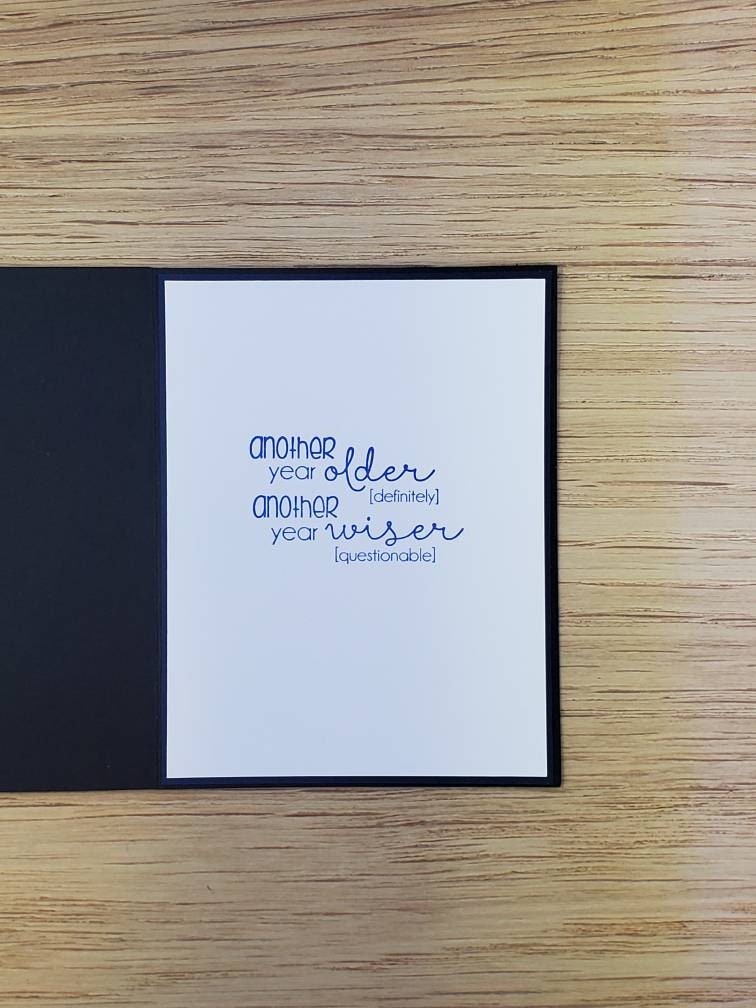 another
year older
[definitely]
another
year wiser
[questionable]